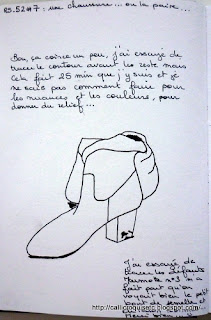 es.52#7 : une chaussure... ou la paire...
Bon, ça coince un peu, j'ai essayé de
tracer le contour avant les reste mais
cela fait 25 min que j'y suis et je
ne sais pas comment faire pour
les nuances et les couleurs, pour
donner du relief...
J'ai essayé de
tracer les défauts
n°3 a
fait part qu'on
voyait bien le petit
bout de semelle et
http://callicroquisetc.blogspot.com/